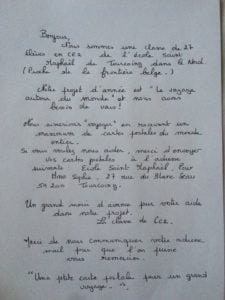 Bonjour,
Nous sommes une classe de 27
élèves en CE2 de l'école Saint
Raphaël de Tourcoing dans le Nord
(Proche de la frontière belge.)
Notre projet d'année est "Le voyage
autour du monde" et nous avons
besoin de vous!
Nous aimerions "voyager" en recevant un
maximum de cartes postales du monde
entier.
Si vous voulez nous aider, merci d'envoyer
vos cartes postales à l'adresse
suivante: Ecole Saint Raphaël, Pour
Mme Sophie, 27 rue du
59200 Tourcoing.
Un grand merci d'avance pour votre aide
dans notre projet.
La classe de CE2.
Merci de nous communiquer votre adresse
mail pour que l'on puisse
vous remercier.
"Une petite carte postale pour un grand
voyage."